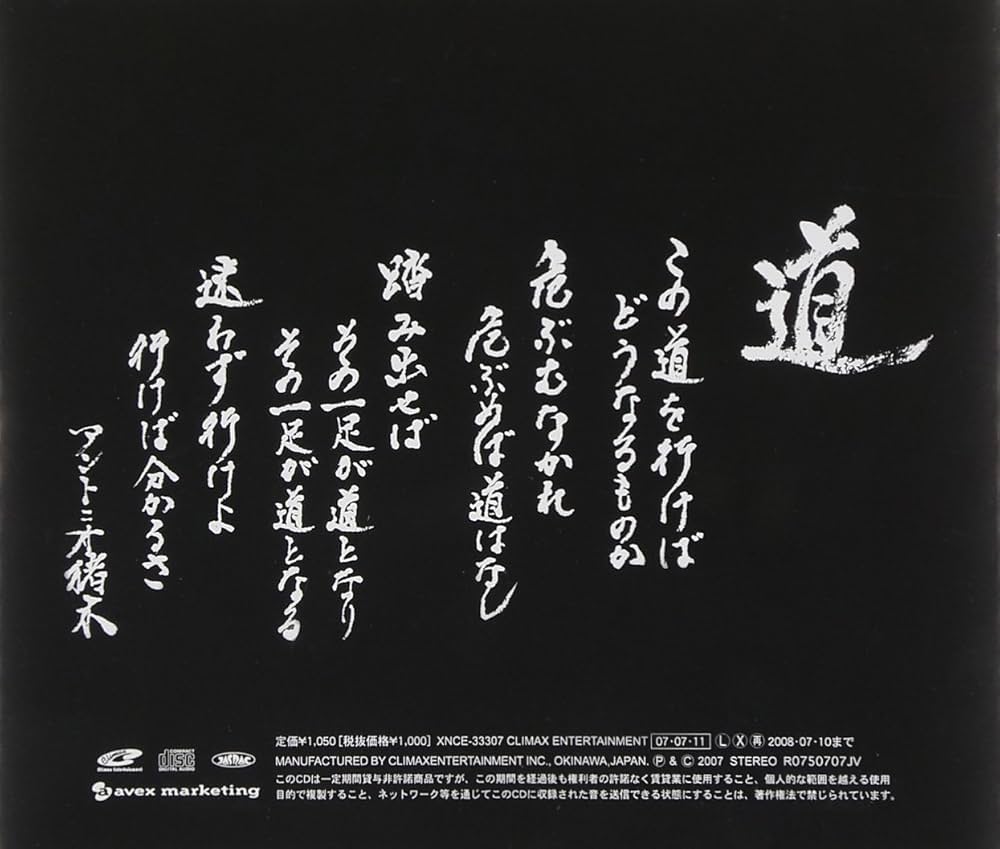 道
この道を行けば
どうなるものか
危ぶむなかれ
危ぶめば道はなし
踏み出せば
その一足が道となり
その一足が道となる
迷わず行けよ
行けば分かるさ
アントニオ猪木
定価¥1,050[税抜価格¥1,000] XNCE-33307 CLIMAX ENTERTAINMENT 07·07·11 Ⓛ Ⓧ ㊢ 2008·07·10まで
MANUFACTURED BY CLIMAXENTERTAINMENT INC., OKINAWA,JAPAN. Ⓟ & © 2007 STEREO R0750707JV
このCDは一定期間貸与非許諾商品ですが、この期間を経過後も権利者の許諾なく賃貸業に使用すること、個人的な範囲を越える使用
目的で複製すること、ネットワーク等を通じてこのCDに収録された音を送信できる状態にすることは、著作権法で禁じられています。
Climax Entertainment
COMPACT disc DIGITAL AUDIO
JASRAC
avex marketing